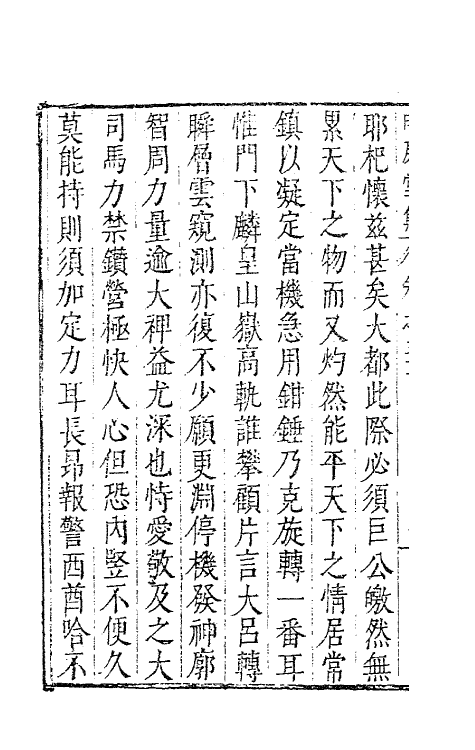 耶杞懷茲甚矣大都此際必須巨公皦然無
累天下之物而又灼然能平天下之情居常
鎮以凝定當機急用鉗錘乃克旋轉一番耳
惟門下麟皇山嶽高軌誰攀顧片言大呂轉
瞬層雲窺測亦復不少願更淵停機發神廓
智周力量逾大裨益尤深也恃愛敬及之大
司馬力禁鑽營極快人心但恐內竪不便久
莫能持則須加定力耳長昂報警西酋哈不